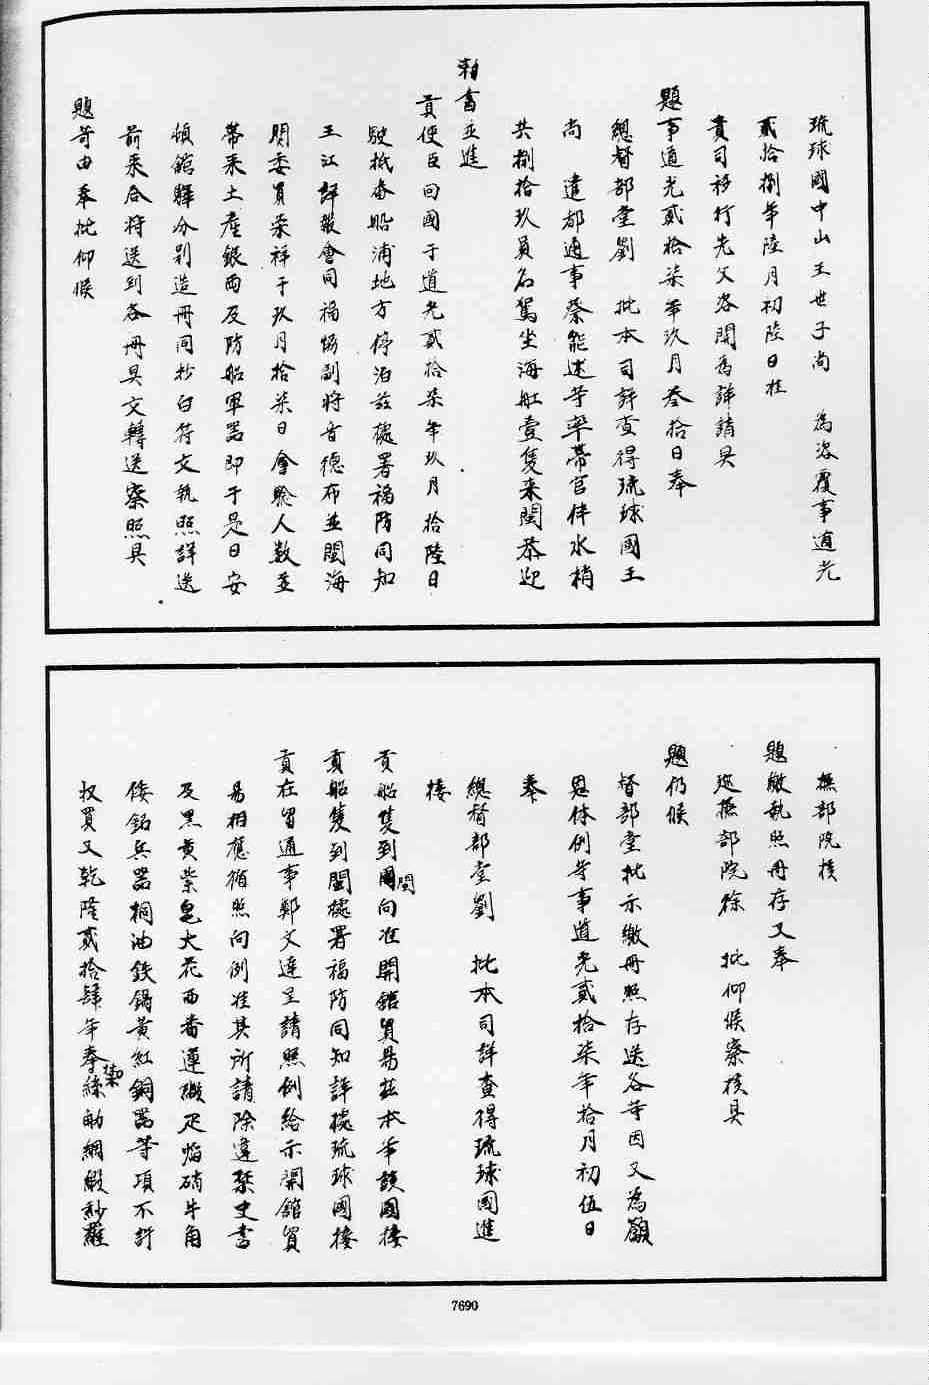 琉球國中山王世子尚　為咨覆事道光
貳拾捌年陸月初陸日准
貴司移行先父咨開為詳請具
題事道光貳拾柒年玖月叁拾日奉
總督部堂劉　批本司詳查得琉球國王
尚　遣都通事蔡能述等率帶官伴水梢
共捌拾玖員名駕坐海舡壹隻來閩恭迎
勅書並進
貢使臣回國于道光貳拾柒年玖月拾陸日
駛抵查船浦地方停泊茲據署福防同知
王江詳報會同福協副將音德布並閩海
関委員榮祥于玖月拾柒日會驗人数並
帶來土產銀両及防船軍器即于是日安
頓館驛分别造冊同抄白符文执照詳送
前来合將送到各冊具文轉送察照具
題等由奉批仰候
撫部院核
題繳執照冊存又奉
巡撫部院徐　批仰候察核具
題仍候
督部堂批示繳冊照存送各等因又為籲
恩体例等事道光貳拾柒年拾月初伍日
奉
總督部堂劉　批本司詳查得琉球國進
接
貢船隻到閩向准開館貿易茲本年該國接
貢船隻到閩據署福防同知詳據琉球國接
貢在留通事鄭文達呈請照例給示開館貿
易相應循照向例准其所請除違禁史書
及黑黄紫皂大花西番蓮緞疋焰硝牛角
倭鉛兵器桐油鉄鍋黃紅銅器等項不許
収買又乾隆貳拾肆年奉禁絲觔綢緞紗羅
7690